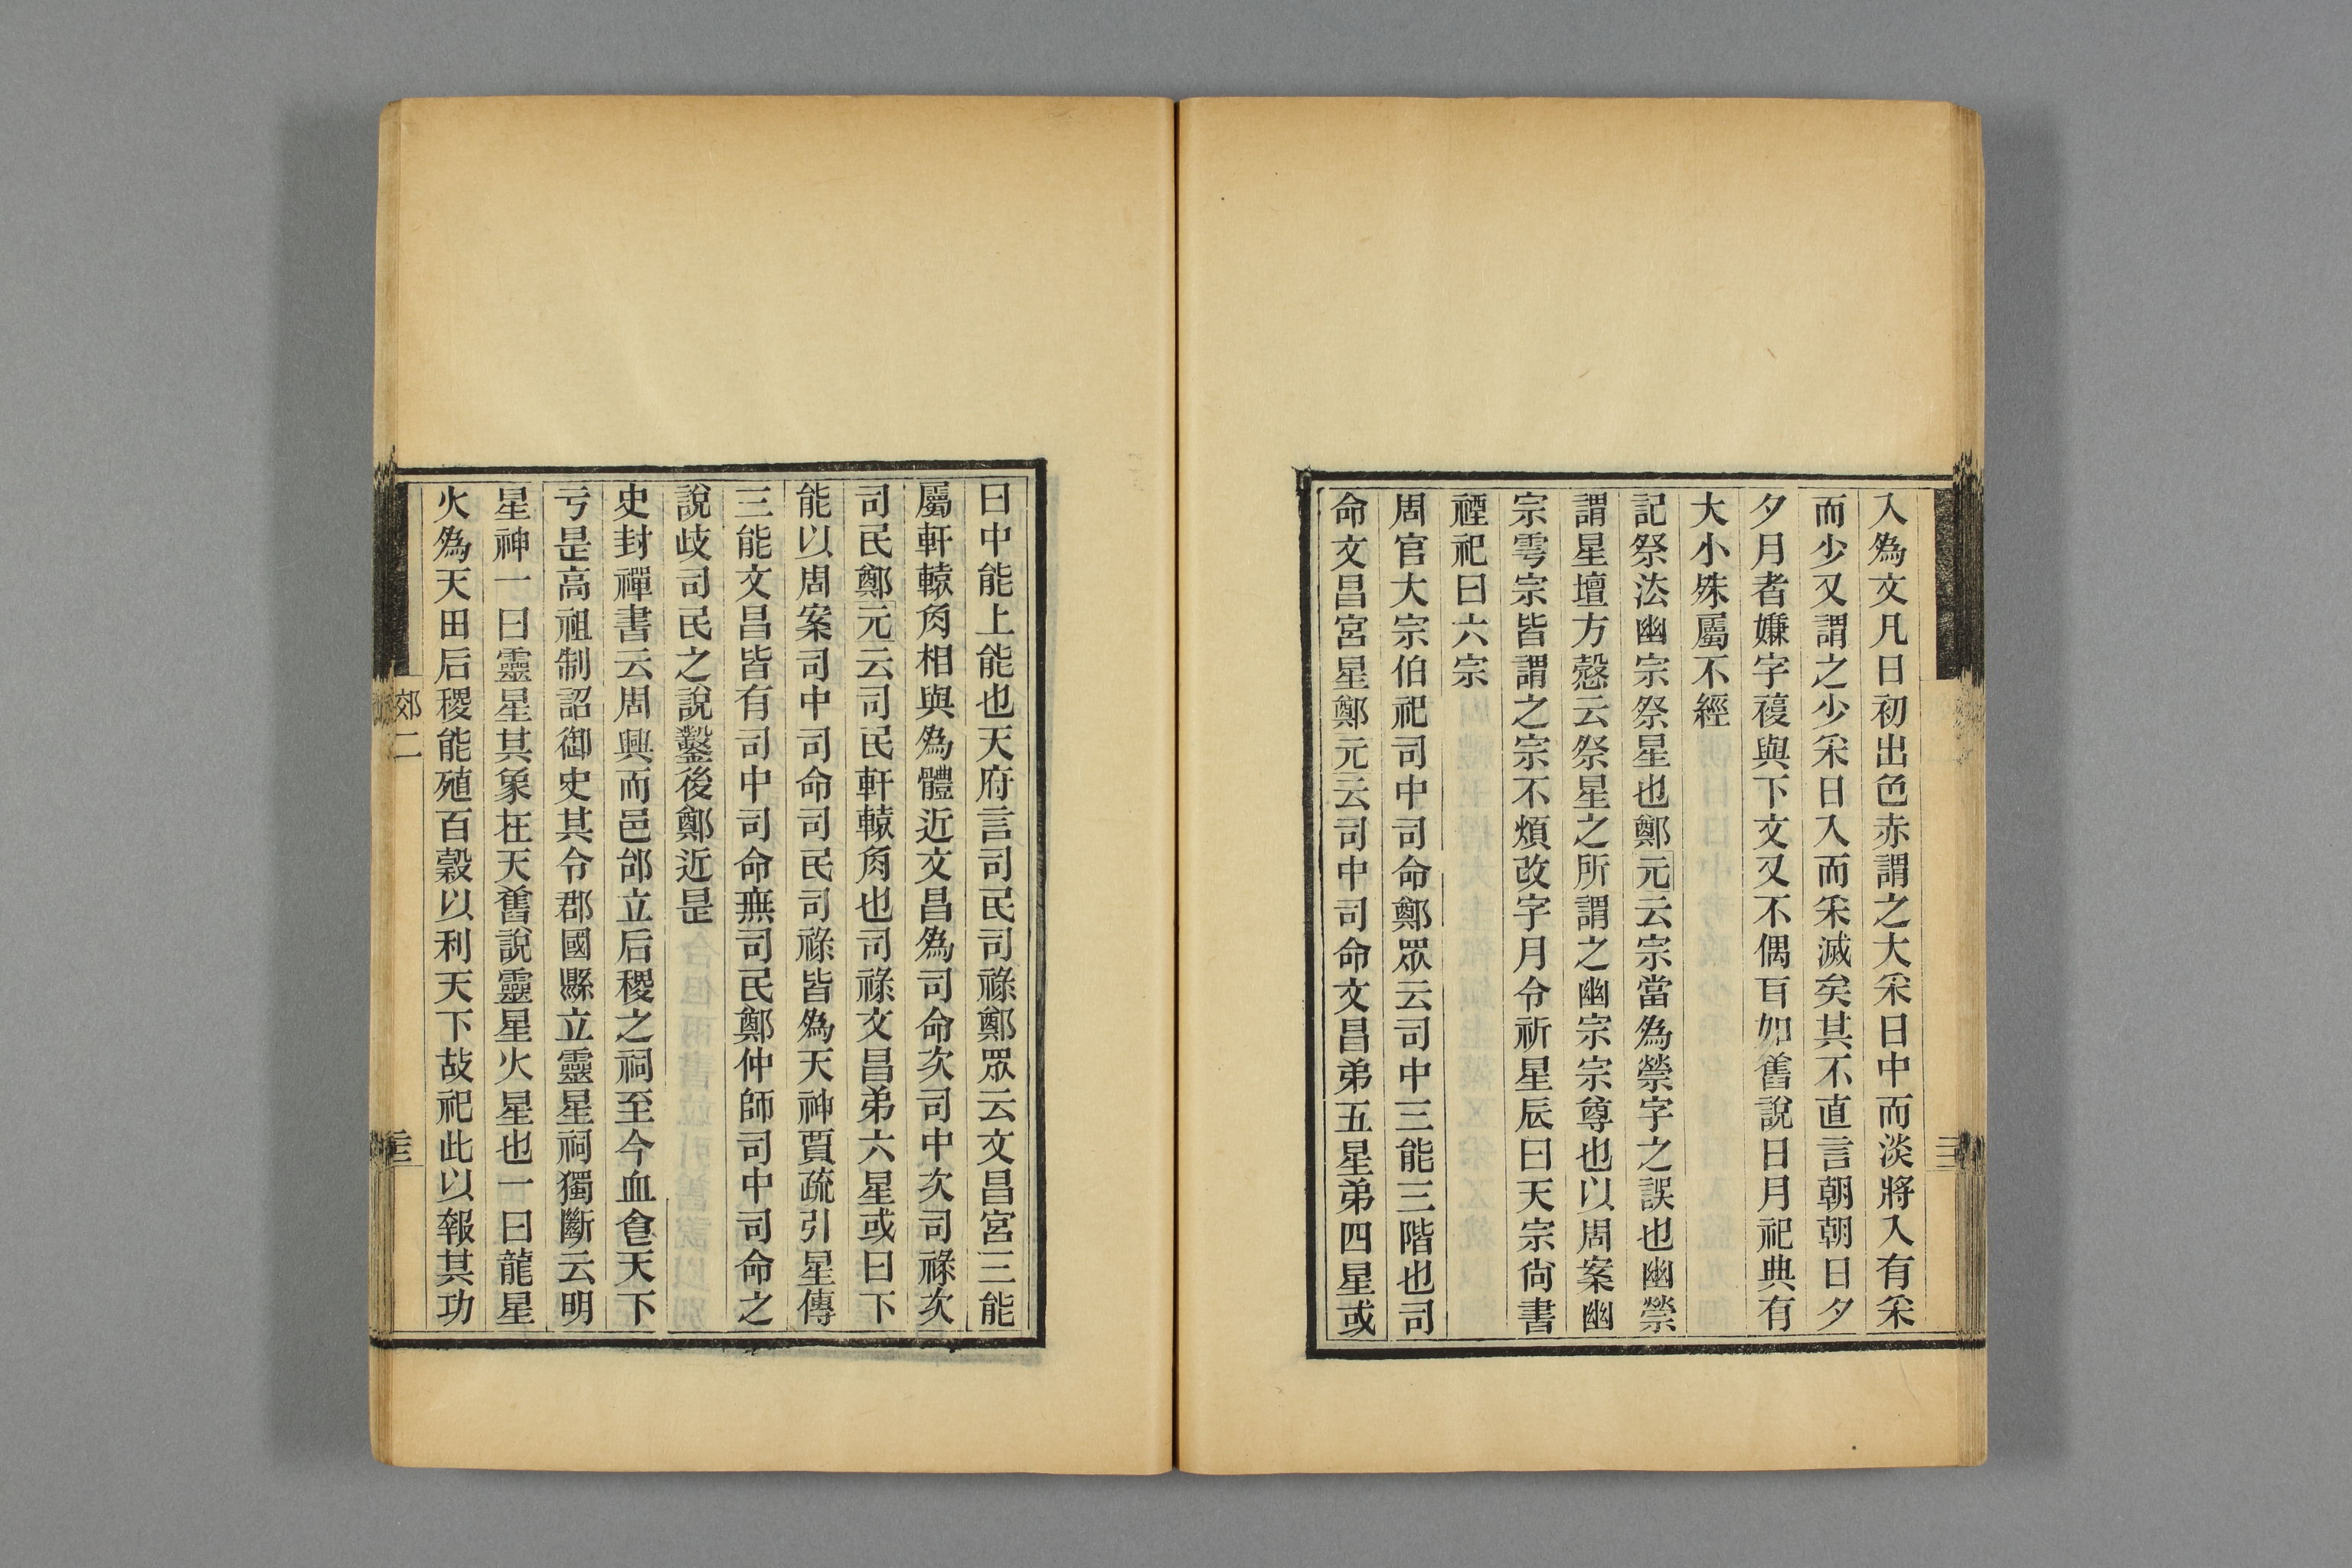 入爲文凡日初出色赤謂之大采日中而淡將入有采
而少又謂之少采日入而采滅矣其不直言朝朝日夕
夕月者嫌字複與下文又不偶耳如舊說日月祀典有
大小殊屬不經
記祭法幽宗祭星也鄭元云宗當爲禜字之誤也幽禜
謂星壇方愨云祭星之所謂之幽宗宗尊也以周案幽
宗雩宗皆謂之宗不煩改字月令祈星辰曰天宗尙書
禋祀曰六宗
周官大宗伯祀司中司命鄭眾云司中三能三階也司
命文昌宮星鄭元云司中司命文昌弟五星弟四星或
曰中能上能也天府言司民司祿鄭眾云文昌宮三能
屬軒轅角相與爲體近文昌爲司命次司中次司祿次
司民鄭元云司民軒轅角也司祿文昌弟六星或曰下
能以周案司中司命司民司祿皆爲天神賈疏引星傳
三能文昌皆有司中司命無司民鄭仲師司中司命之
說歧司民之說鑿後鄭近是
史封禪書云周興而邑邰立后稷之祠至今血食天下
亏是高祖制詔御史其令郡國縣立靈星祠獨斷云明
星神一曰靈星其象在天舊說靈星火星也一曰龍星
火爲天田后稷能殖百穀以利天下故祀此以報其功
郊二